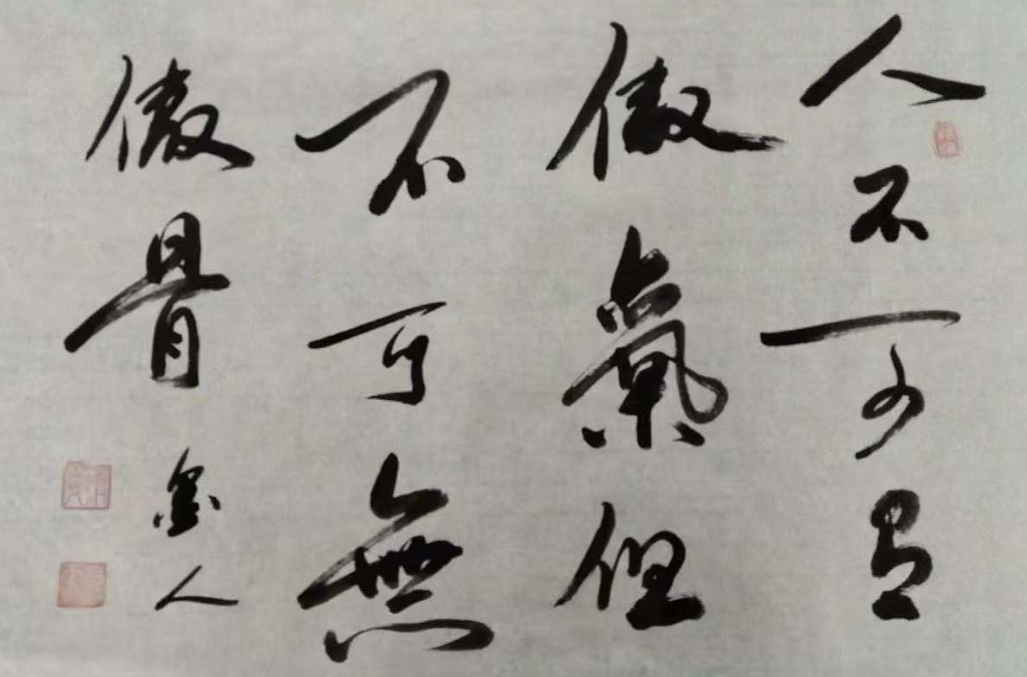 人不可有
傲氣但
不可無
傲骨
人